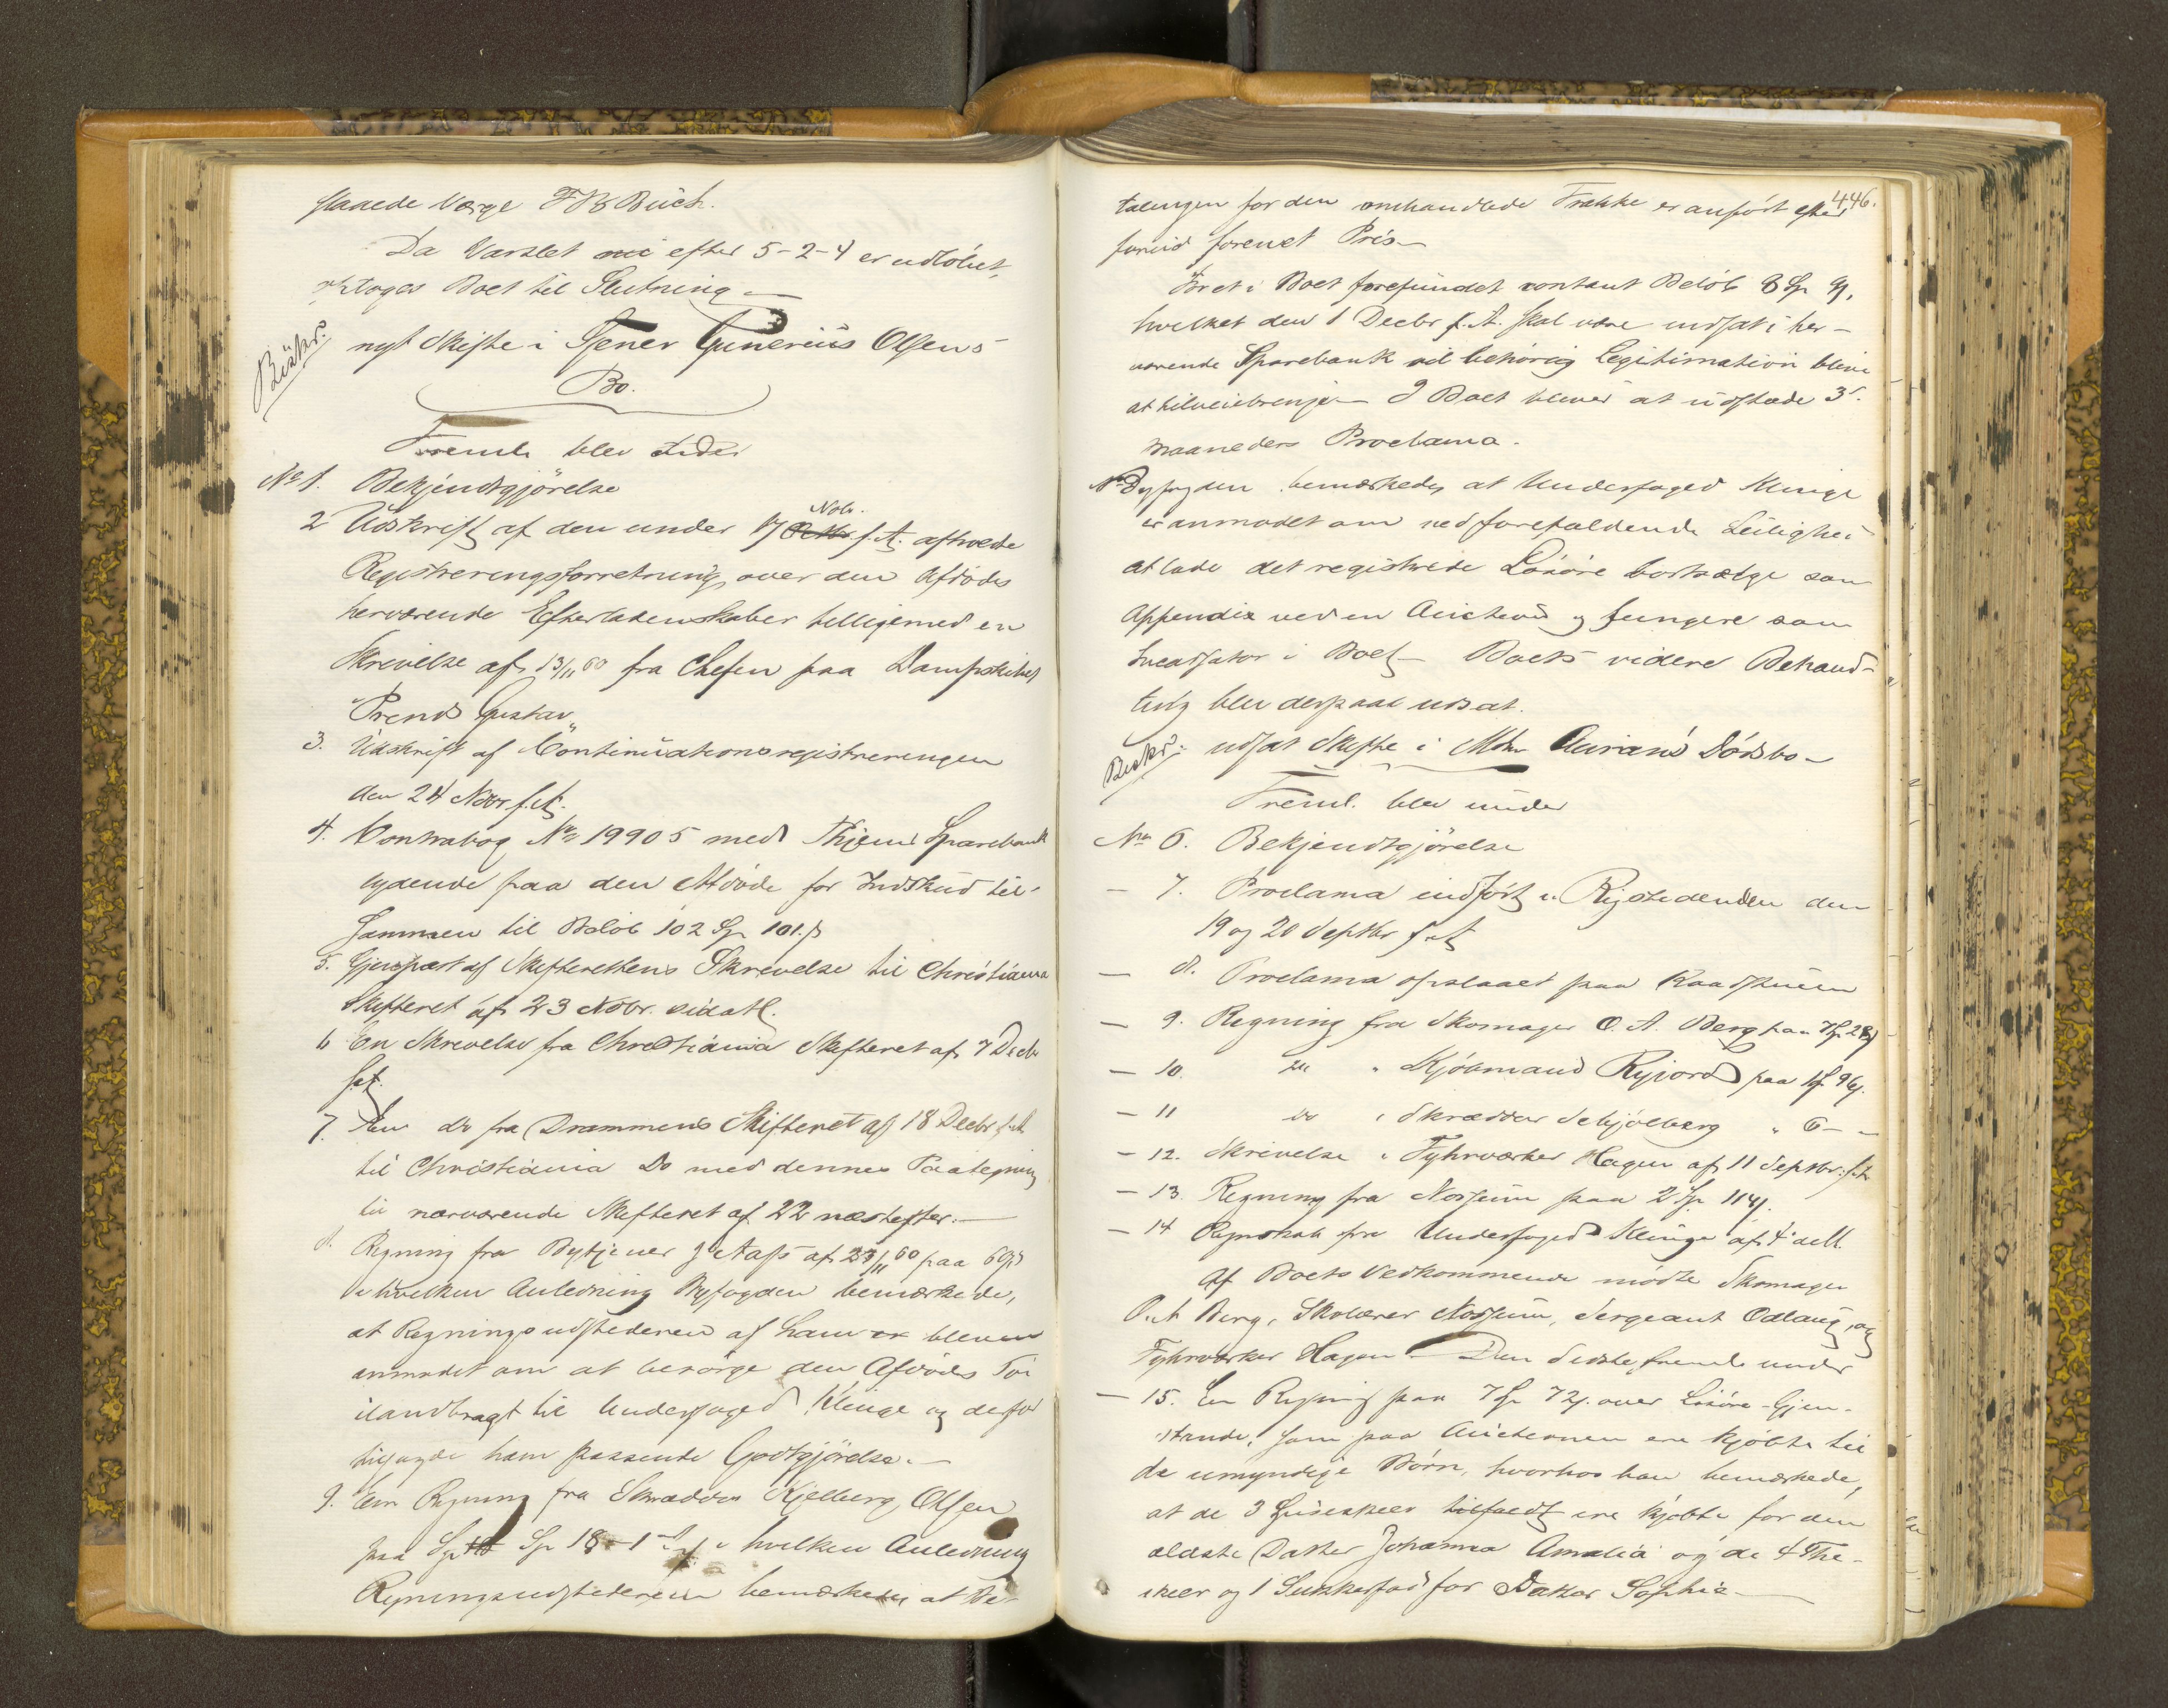 staaede Værge F B Buck.
Da Varslet nu efter 5-2-4 er udløbet,
optoges Boet til Slutning —
Beskr.
nyt Skifte i Tjener Gunerius Olsens
Bo.
Freml. blev under
No 1. Bekjendtgjörelse
2 Udskrift af den under 17 Novbr. f. A. afholdte
Registreringsforretning over den Afdödes
herværende Efterladenskaber tilligemed en
Skrivelse af 13/11 60 fra Chefen paa Dampskibet
"Prinds Gustav"
3. Udskrift af Continuationsregistreringen
den 24 Novbr. f. A.
4. Contrabog No 19905 med Thjems Sparebank
lydende paa den Afdöde for Indskud til-
sammen til Belöb 102 Sp 101 s
5. Gjenpart af Skifterettens Skrivelse til Christiania
Skifteret af 23 Novbr. sidstl.
6 En Skrivelse fra Christiania Skifteret af 7 Decbr
f. A.
7. En do fra Drammens Skifteret af 18 Decbr f. A.
til Christiania Do med dennes Paategning
til nærværende Skifteret af 22 næstefter. —
8. Regning fra Bytjener J Aas af 23/11 60 paa 60 s
i hvilken Anledning Byfogden bemærkede,
at Regningsudstederen af ham er bleven
anmodet om at besörge den Afdödes Töi
ilandbragt til Underfoged Klinge og derfor
tilsagde ham passende Godtgjörelse. —
9. En Regning fra Skrædder Kjelberg Olsen
paa Sp 18 - 1 i hvilken Anledning
Regningsudstederen bemærkede, at Be-
446.
talingen for den omhandlede Frakke er anfört efter
forud forenet Pris —
For et i Boet forefundet contant Belöb 8 Sp
hvilket den 1 Decbr f. A. skal være indsat i her-
værende Sparebank vil behörig Legitimation blive
at tilveiebringe — I Boet bliver at udstæde 3
maaneders Proclama.
Byfogden bemærkede, at Underfoged Klinge
er anmodet om ved forefaldende Leilighed
at lade det registrerede Lösöre bortsælge som
Appendix ved en Auction og fungere som
Incassator i Boet — Boets videre Behand-
ling blev derpaa udsat.
Beskr.
udsat Skifte i Mdm Aurians Dödsbo —
Freml. blev under
No 6. Bekjendtgjörelse
— 7. Proclama indfört i Rigstidenden den
19 og 20 Septbr f. A
— 8. Proclama opslaaet paa Raadstuen
— 9. Regning fra Skomager O. A. Berg paa 7 Sp 28 s
— 10. do " Kjöbmand Ryjord paa 1 Sp 96 s.
— 11 do " Skrædder Schjölberg " 6 — "
— 12. Skrivelse " Fyhrværker Hagen af 11 Septbr. f. A.
— 13. Regning fra Nossum paa 2 Sp. 114 s.
— 14 Regnskab fra Underfoged Klinge af 4 ds.
Af Boets Vedkommende mödte Skomager
O. A Berg, Skolærer Nossum, Sergeant Odlaug, og
Fyhrværker Hagen — Den Sidste freml. under
— 15. En Regning paa 7 Sp 72 s. over Lösöre-Gjen-
stande, som paa Auctionen ere kjöbte til
de umyndige Börn, hvorhos han bemærkede,
at de 3 Spiseskeer ere kjöbte for den
ældste Datter Johanna Amalia og de 4 The-
skeer og 1 Sukkerfad for Datter Sophie —